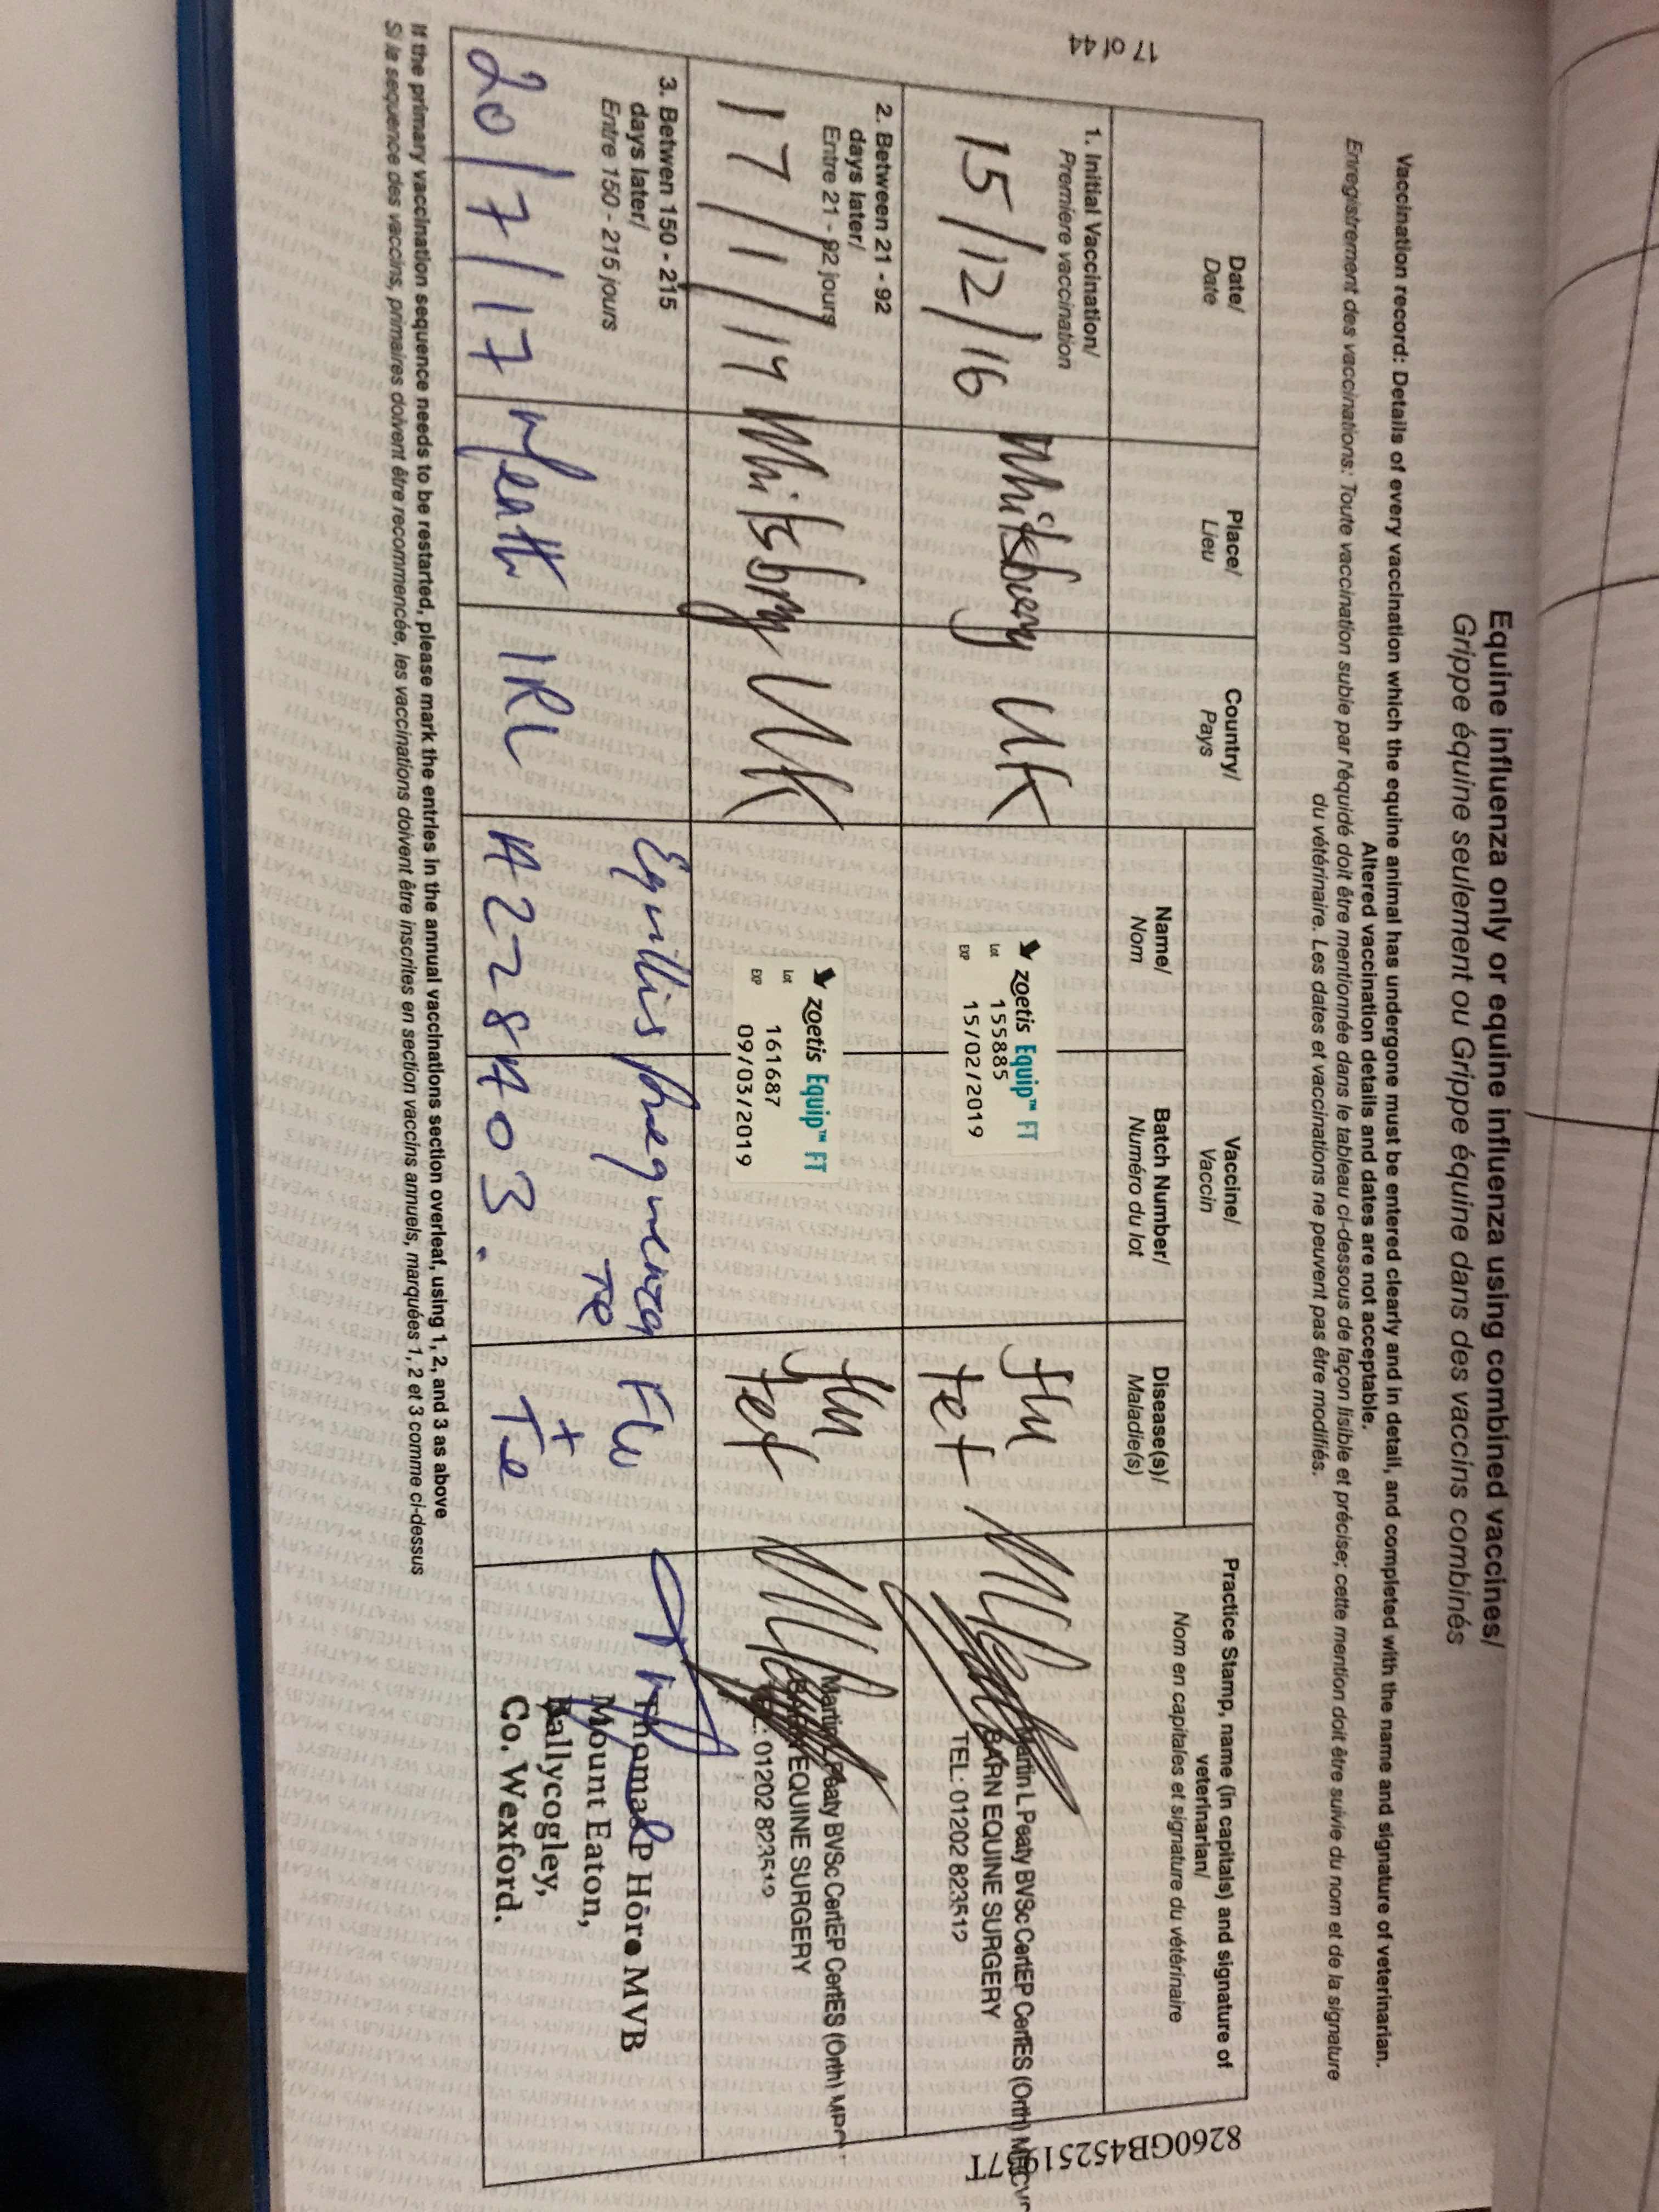 Equine influenza only or equine influenza using combined vaccines/
Grippe équine seulement ou Grippe équine dans des vaccins combinés
Vaccination record: Details of every vaccination which the equine animal has undergone must be entered clearly and in detail, and completed with the name and signature of veterinarian.
Altered vaccination details and dates are not acceptable.
Enregistrement des vaccinations: Toute vaccination subie par l'équidé doit être mentionnée dans le tableau ci-dessous de façon lisible et précise; cette mention doit être suivie du nom et de la signature
du vétérinaire. Les dates et vaccinations ne peuvent pas être modifiés.
Date/
Date
Place/
Lieu
Country/
Pays
Vaccine/
Vaccin
Name/
Nom
Batch Number/
Numéro du lot
Disease(s)/
Maladie(s)
Practice Stamp, name (in capitals) and signature of
veterinarian/
Nom en capitales et signature du vétérinaire
1. Initial Vaccination/
Premiere vaccination
15/12/16
UK
zoetis Equip™ FT
Lot 155885
EXP 15/02/2019
flu
tet
Martin L Peaty BVSc CertEP CertES (Orth) MRCVS
BARN EQUINE SURGERY
TEL: 01202 823512
2. Between 21 - 92
days later/
Entre 21 - 92 jours
17/1/17
UK
zoetis Equip™ FT
Lot 161687
EXP 09/03/2019
flu
tet
Martin L Peaty BVSc CertEP CertES (Orth)
BARN EQUINE SURGERY
01202 823512
3. Betwen 150 - 215
days later/
Entre 150 - 215 jours
20/7/17
IRL
Equilis Prequenza
Te
A228A03.
Flu
+
Te
Thomas P Hore MVB
Mount Eaton,
Ballycogley,
Co. Wexford.
If the primary vaccination sequence needs to be restarted, please mark the entries in the annual vaccinations section overleaf, using 1, 2, and 3 as above
Si la sequence des vaccins, primaires doivent être recommencée, les vaccinations doivent être inscrites en section vaccins annuels, marquées 1, 2 et 3 comme ci-dessus
17 of 44
8260GB45251977T